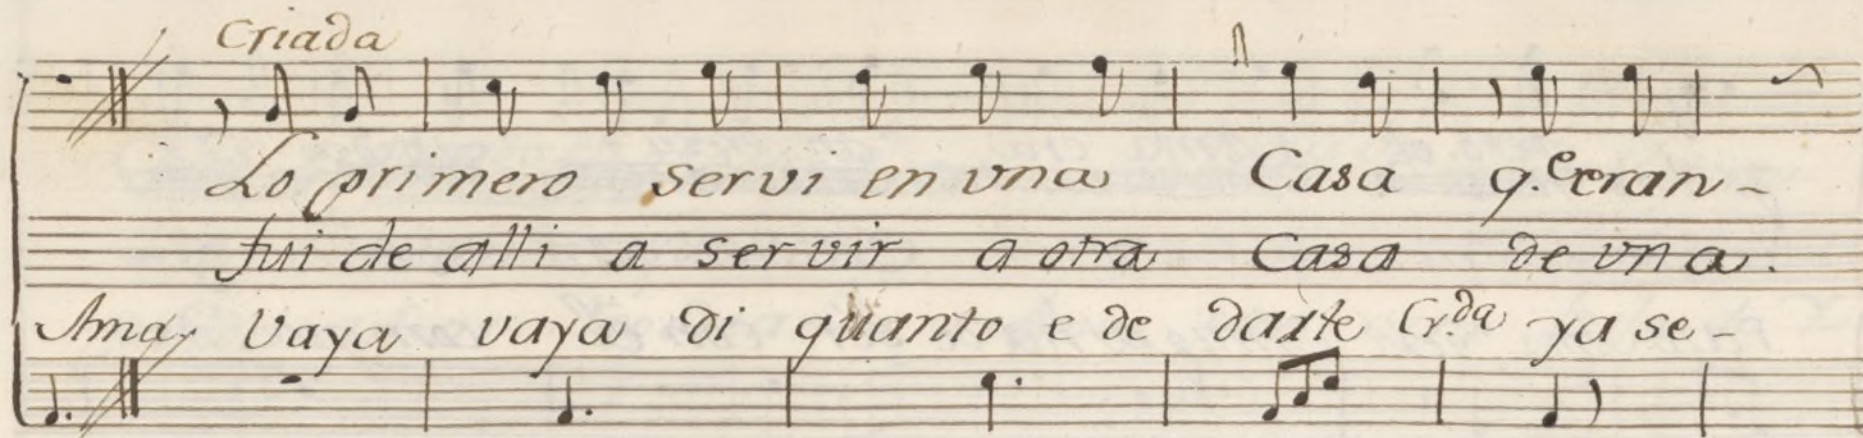 Criada
Lo primero servi en vna Casa q.e eran-
fui de alli a servir a otra Casa de vna.
Ama Vaya vaya di quanto e de darte Cr.da ya se-